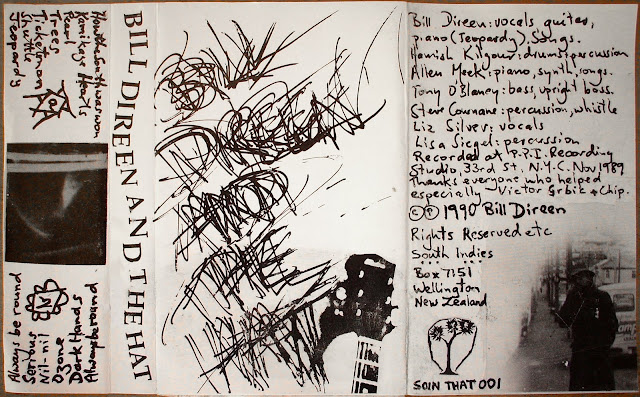 How the South was won
Kamikaze Hearts
Pearl
Trees
Ticketman
Shuttle
Jeopardy
Dark Hands
Ozone
Nil-nil
Serious
Always be round
BILL DIREEN AND THE HAT
Bill Direen: vocals guitar,
piano (Jeopardy), Songs.
Hamish Kilgour: drums, percussion
Allen Meek: piano, synth, songs.
Tony O'Blaney: bass, upright bass.
Steve Cournane: percussion, whistle
Liz Silver: vocals
Lisa Siegel: percussion
Recorded at P.P.I. Recording
Studio, 33rd St. N.Y.C. Nov 1989
Thanks everyone who helped
especially Victor Grbic & Chip.
© ℗ 1990 Bill Direen
Rights Reserved etc
South Indies
Box 7151
Wellington
New Zealand
SOIN THAT 001